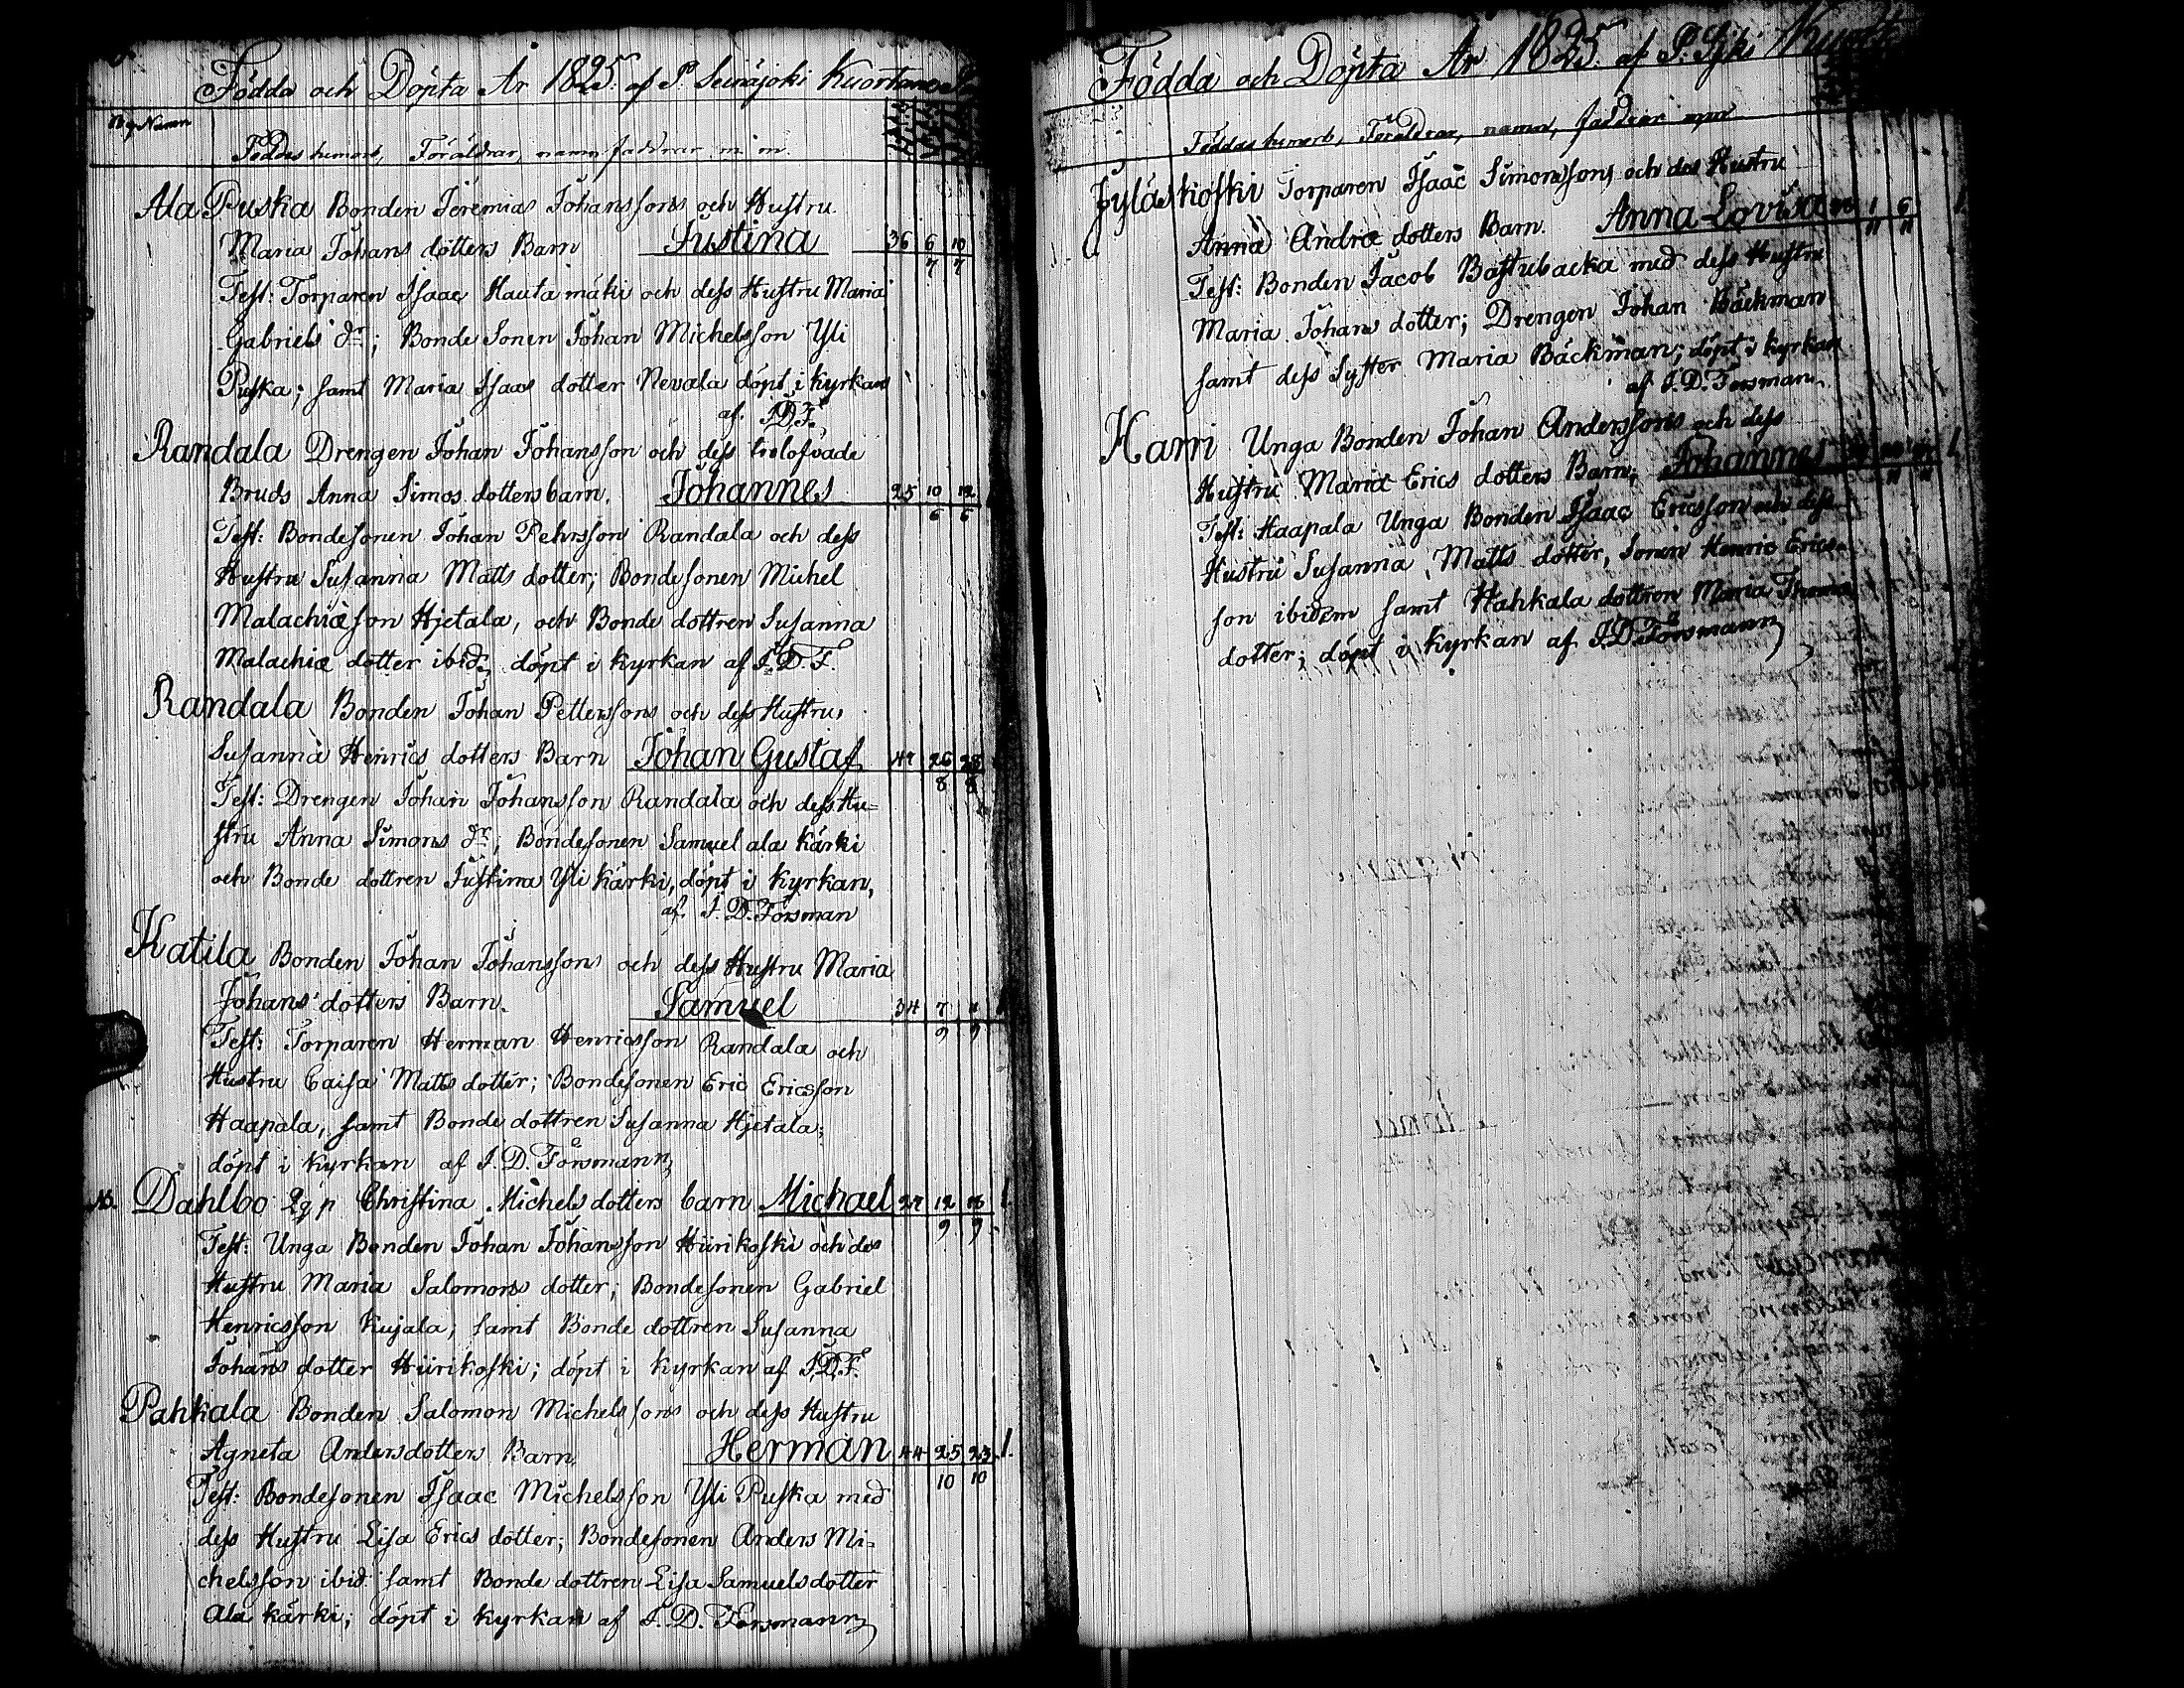 Födda och Döpta År 1825. af P. Seinäjoki Kuortane
By Namn
Föddas hemort, Föräldrar, namn faddrar m. m.
Ala Puska Bonden Jeremias Johanssons och Hustru
Maria Johans dotters Barn Justina 36 6/7 10/7
Test: Torparen Isaac Hautamäki och dess Hustru Maria
Gabriels dr; Bonde Sonen Johan Michelsson Yli
Puska; samt Maria Isaas dotter Nevala döpt i kyrkan
af. J.D.F.
Randala Drengen Johan Johansson och dess trolofvade
Bruds Anna Simos dotters barn. Johannes 25 10/6 12/6
Test: Bondesonen Johan Pehrsson Randala och dess
Hustru Susanna Matts dotter; Bondesonen Michel
Malachiæson Hjetala, och Bonde dottren Susanna
Malachiæ dotter ibid; döpt i kyrkan af J.D.F.
Randala Bonden Johan Pettersons och dess Hustru,
Susanna Henrics dotters Barn Johan Gustaf 47 26/8 28/8
Test: Drengen Johan Johansson Randala och dess Hu=
stru Anna Simons dr; Bondesonen Samuel ala Kärki
och Bonde dottren Justina Yli Kärki, döpt i kyrkan,
af. J. D. Forsman
Katila Bonden Johan Johanssons och dess Hustru Maria
Johans dotters Barn. Samuel 34 7/9 /9
Test: Torparen Herman Henricsson Randala och
Hustru Caisa Matts dotter; Bondesonen Eric Ericsson
Haapala, samt Bonde dottren Susanna Hjetala;
döpt i kyrkan af J. D. Forsmann
N. Dahlbo Qq p Christina Michels dotters barn Michael 27 12/9 /9 1.
Test: Unga Bonden Johan Johansson Hiirikoski och des
Hustru Maria Salomons dotter; Bondesonen Gabriel
Henricsson Kujala; samt Bonde dottren Susanna
Johans dotter Hiirikoski; döpt i kyrkan af J.D.F.
Pahkala Bonden Salomon Michelssons och dess Hustru
Agneta Andersdotters Barn. Herman 44 25/10 23/10 1.
Test: Bondesonen Isaac Michelsson Yli Puska med
dess Hustru Lisa Erics dotter; Bondesonen Anders Mi=
chelsson ibid. samt Bonde dottren Lisa Samuelsdotter
Ala kärki; döpt i kyrkan af J. D. Forsmann
Födda och Döpta År 1825. af P. Sjki
Föddas hemort, Föräldrar, namn, faddrar mm
Jyläskoski Torparen Isaac Simonssons och des Hustru
Anna Andræ dotters Barn. Anna Lovisa 1/11 6/11 1.
Test: Bonden Jacob Bastubacka med dess Hustru
Maria Johans dotter; Drengen Johan Bäckman
samt dess Syster Maria Bäckman; döpt i kyrkan
af J. D. Forsman.
Harri Unga Bonden Johan Anderssons och dess
Hustru Maria Erics dotters Barn; Johannes 1.
Test: Haapala Unga Bonden Isaac Ericsson och dess
Hustru Susanna Matts dotter, Sonen Henric Erics=
son ibidem samt Hahkala dottren Maria Thomæ
dotter; döpt i kyrkan af J. D. Forsmann